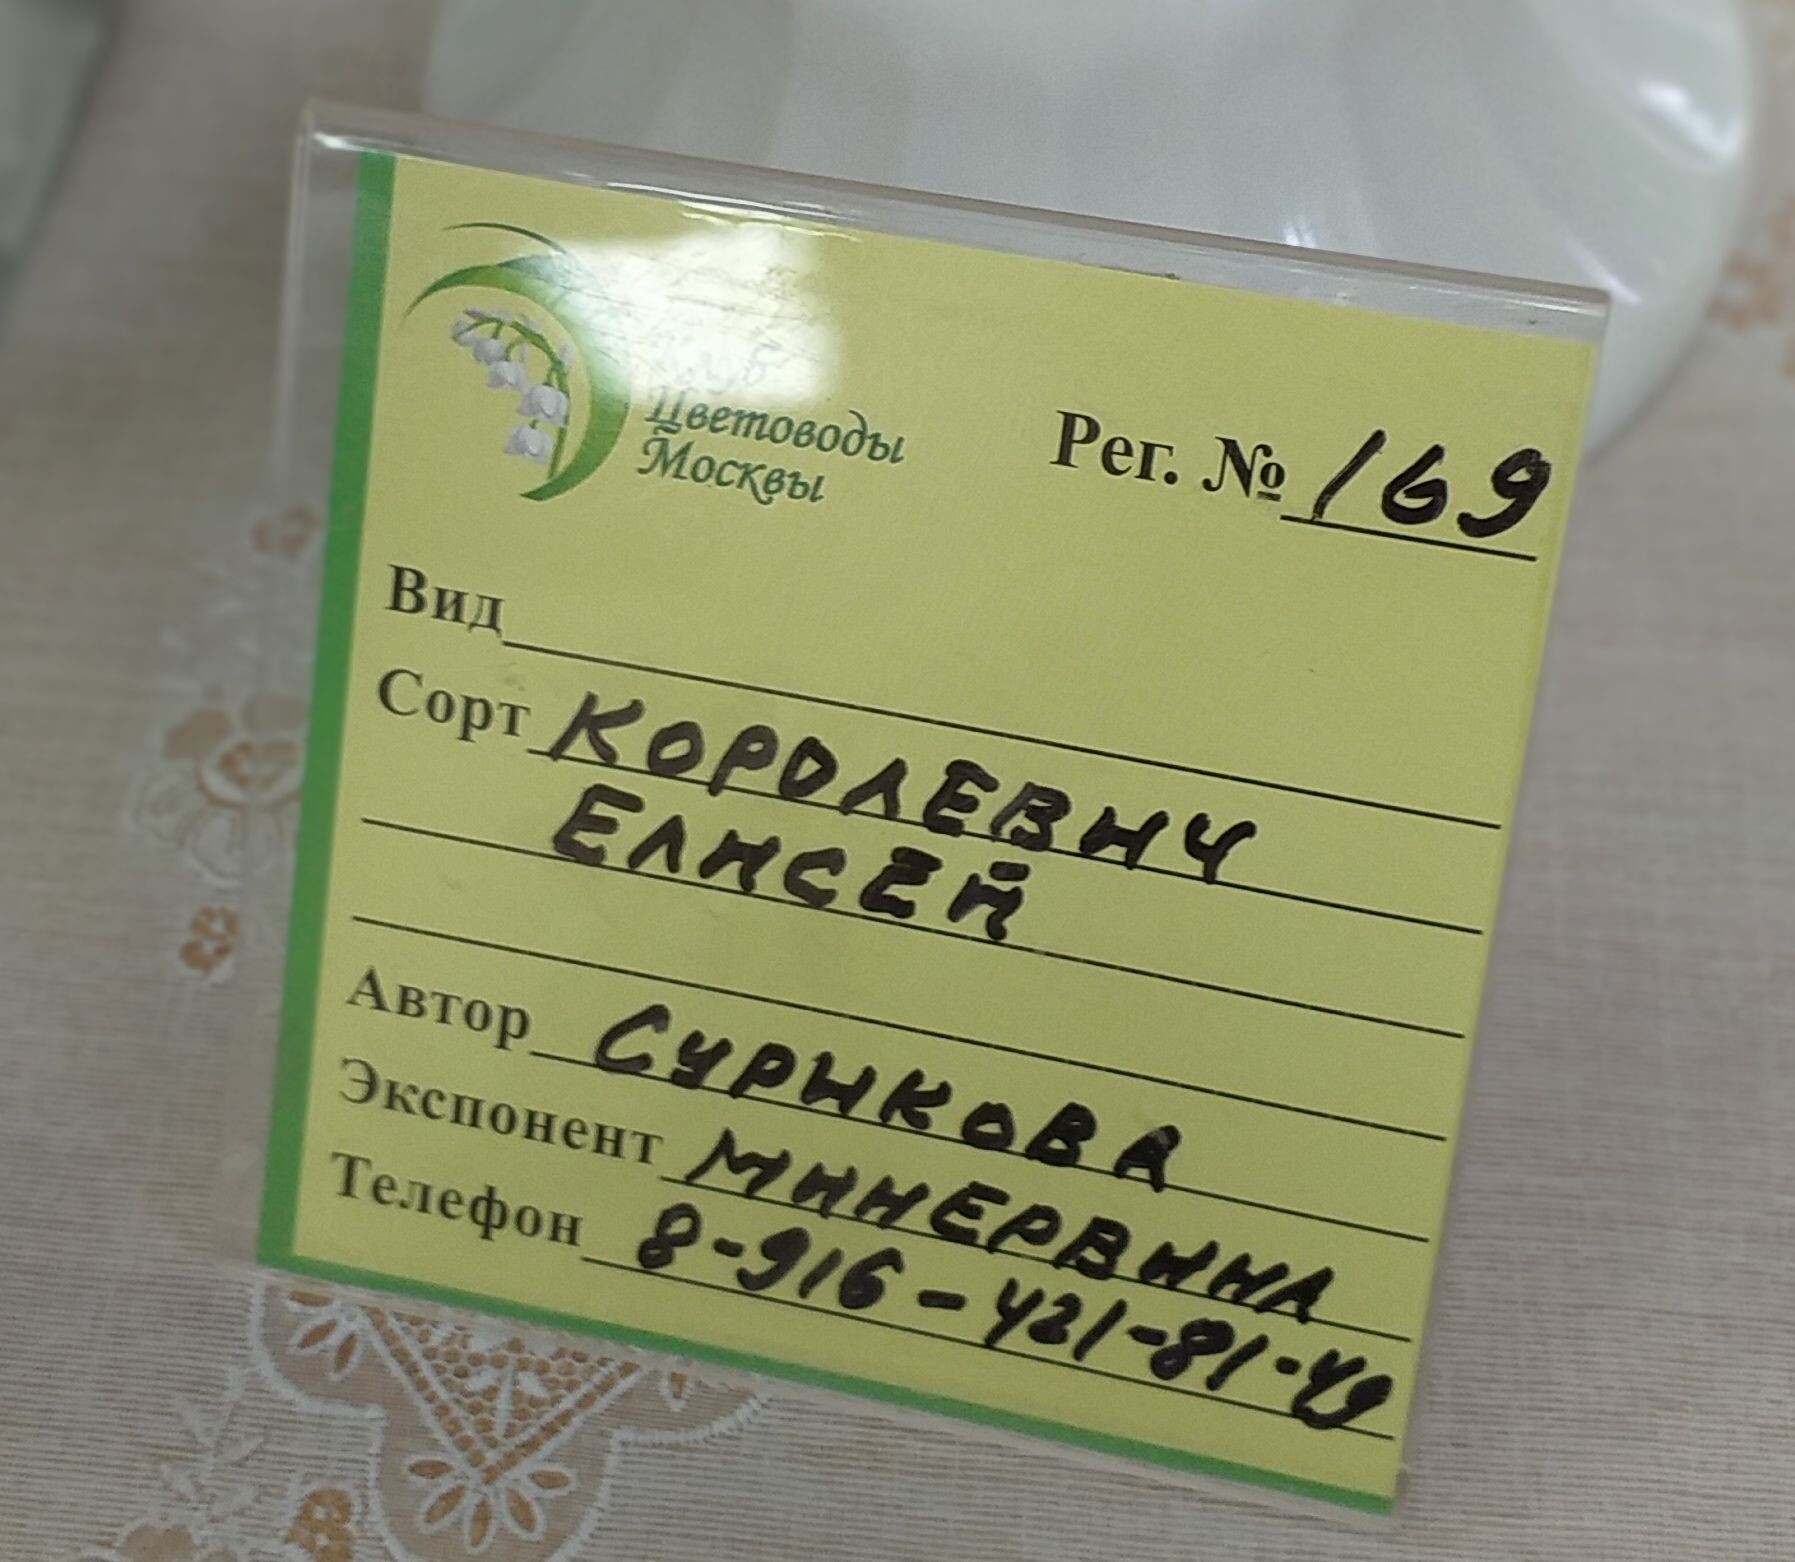 Клуб
Цветоводы
Москвы
Рег. № 169
Вид
Сорт КОРОЛЕВИЧ
ЕЛИСЕЙ
Автор СУРЫКОВА
Экспонент МИНЕРВИНА
Телефон 8-916-421-81-49